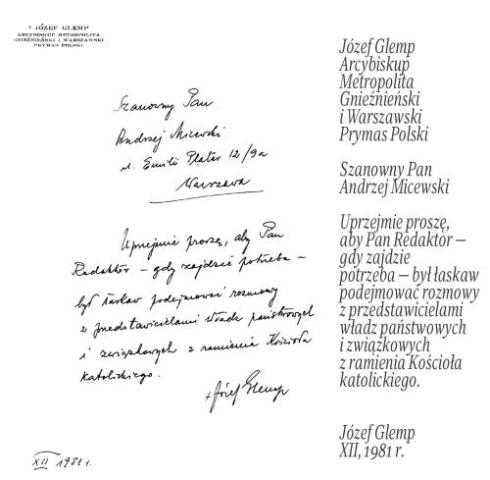 † JÓZEF GLEMP
ARCYBISKUP METROPOLITA
GNIEŹNIEŃSKI I WARSZAWSKI
PRYMAS POLSKI
Szanowny Pan
Andrzej Micewski
ul. Emilii Plater 12/9a
Warszawa
Uprzejmie proszę, aby Pan
Redaktor – gdy zajdzie potrzeba –
był łaskaw podejmować rozmowy
z przedstawicielami władz państwowych
i związkowych z ramienia Kościoła
katolickiego.
+ Józef Glemp
XII 1981 r.
Józef Glemp
Arcybiskup
Metropolita
Gnieźnieński
i Warszawski
Prymas Polski
Szanowny Pan
Andrzej Micewski
Uprzejmie proszę,
aby Pan Redaktor –
gdy zajdzie
potrzeba – był łaskaw
podejmować rozmowy
z przedstawicielami
władz państwowych
i związkowych
z ramienia Kościoła
katolickiego.
Józef Glemp
XII, 1981 r.